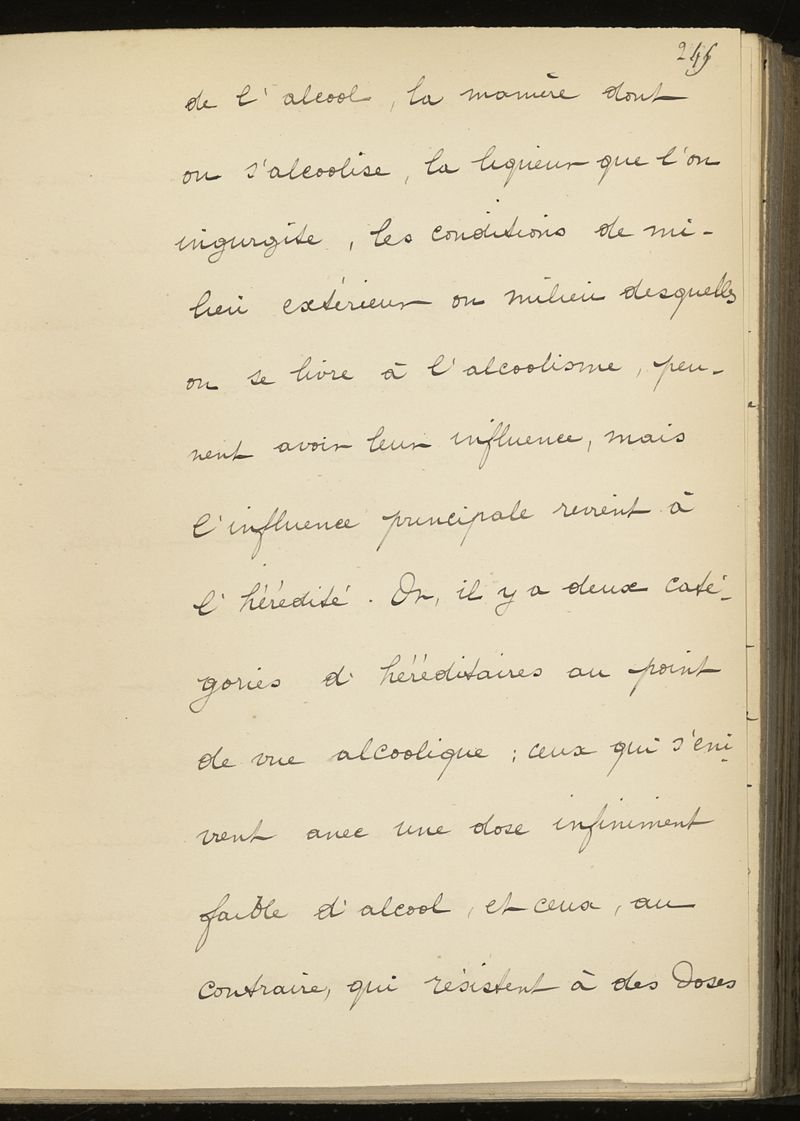 de l'alcool, la manière dont
on s'alcoolise, la liqueur que l'on
ingurgite, les conditions de mi-
lieu extérieur ou milieu desquelles
on se livre à l'alcoolisme, peu-
vent avoir leur influence, mais
l'influence principale revient à
l'hérédité. Or, il y a deux caté-
gories d'héréditaires au point
de vue alcoolique ; ceux qui s'eni-
vrent avec une dose infiniment
faible d'alcool, et ceux, au
contraire, qui résistent à des doses